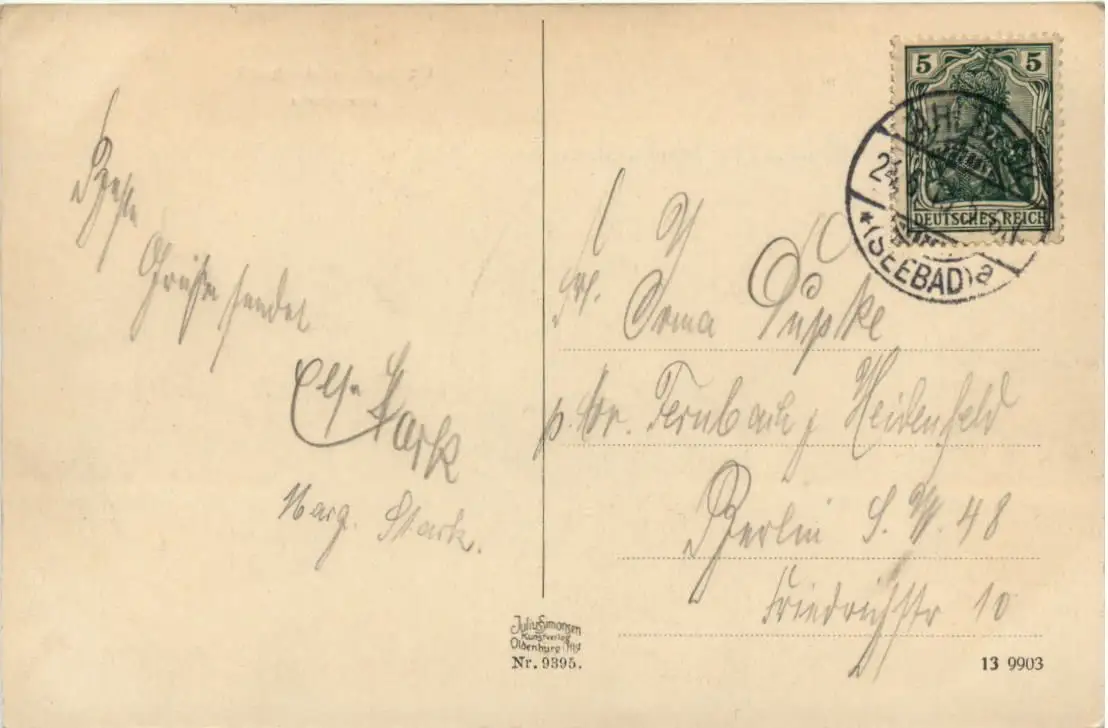 Beste
Grüße sendet
Else Stark
Marg. Stark.
5 5
DEUTSCHES REICH
(SEEBAD) a
Frl. Erna Püpke
p. Adr. Fernbach, Heidenfeld
Berlin S.W. 48
Friedrichstr 10
Julius Simonsen
Kunstverlag
Oldenburg i/H
Nr. 9395.
13 9903